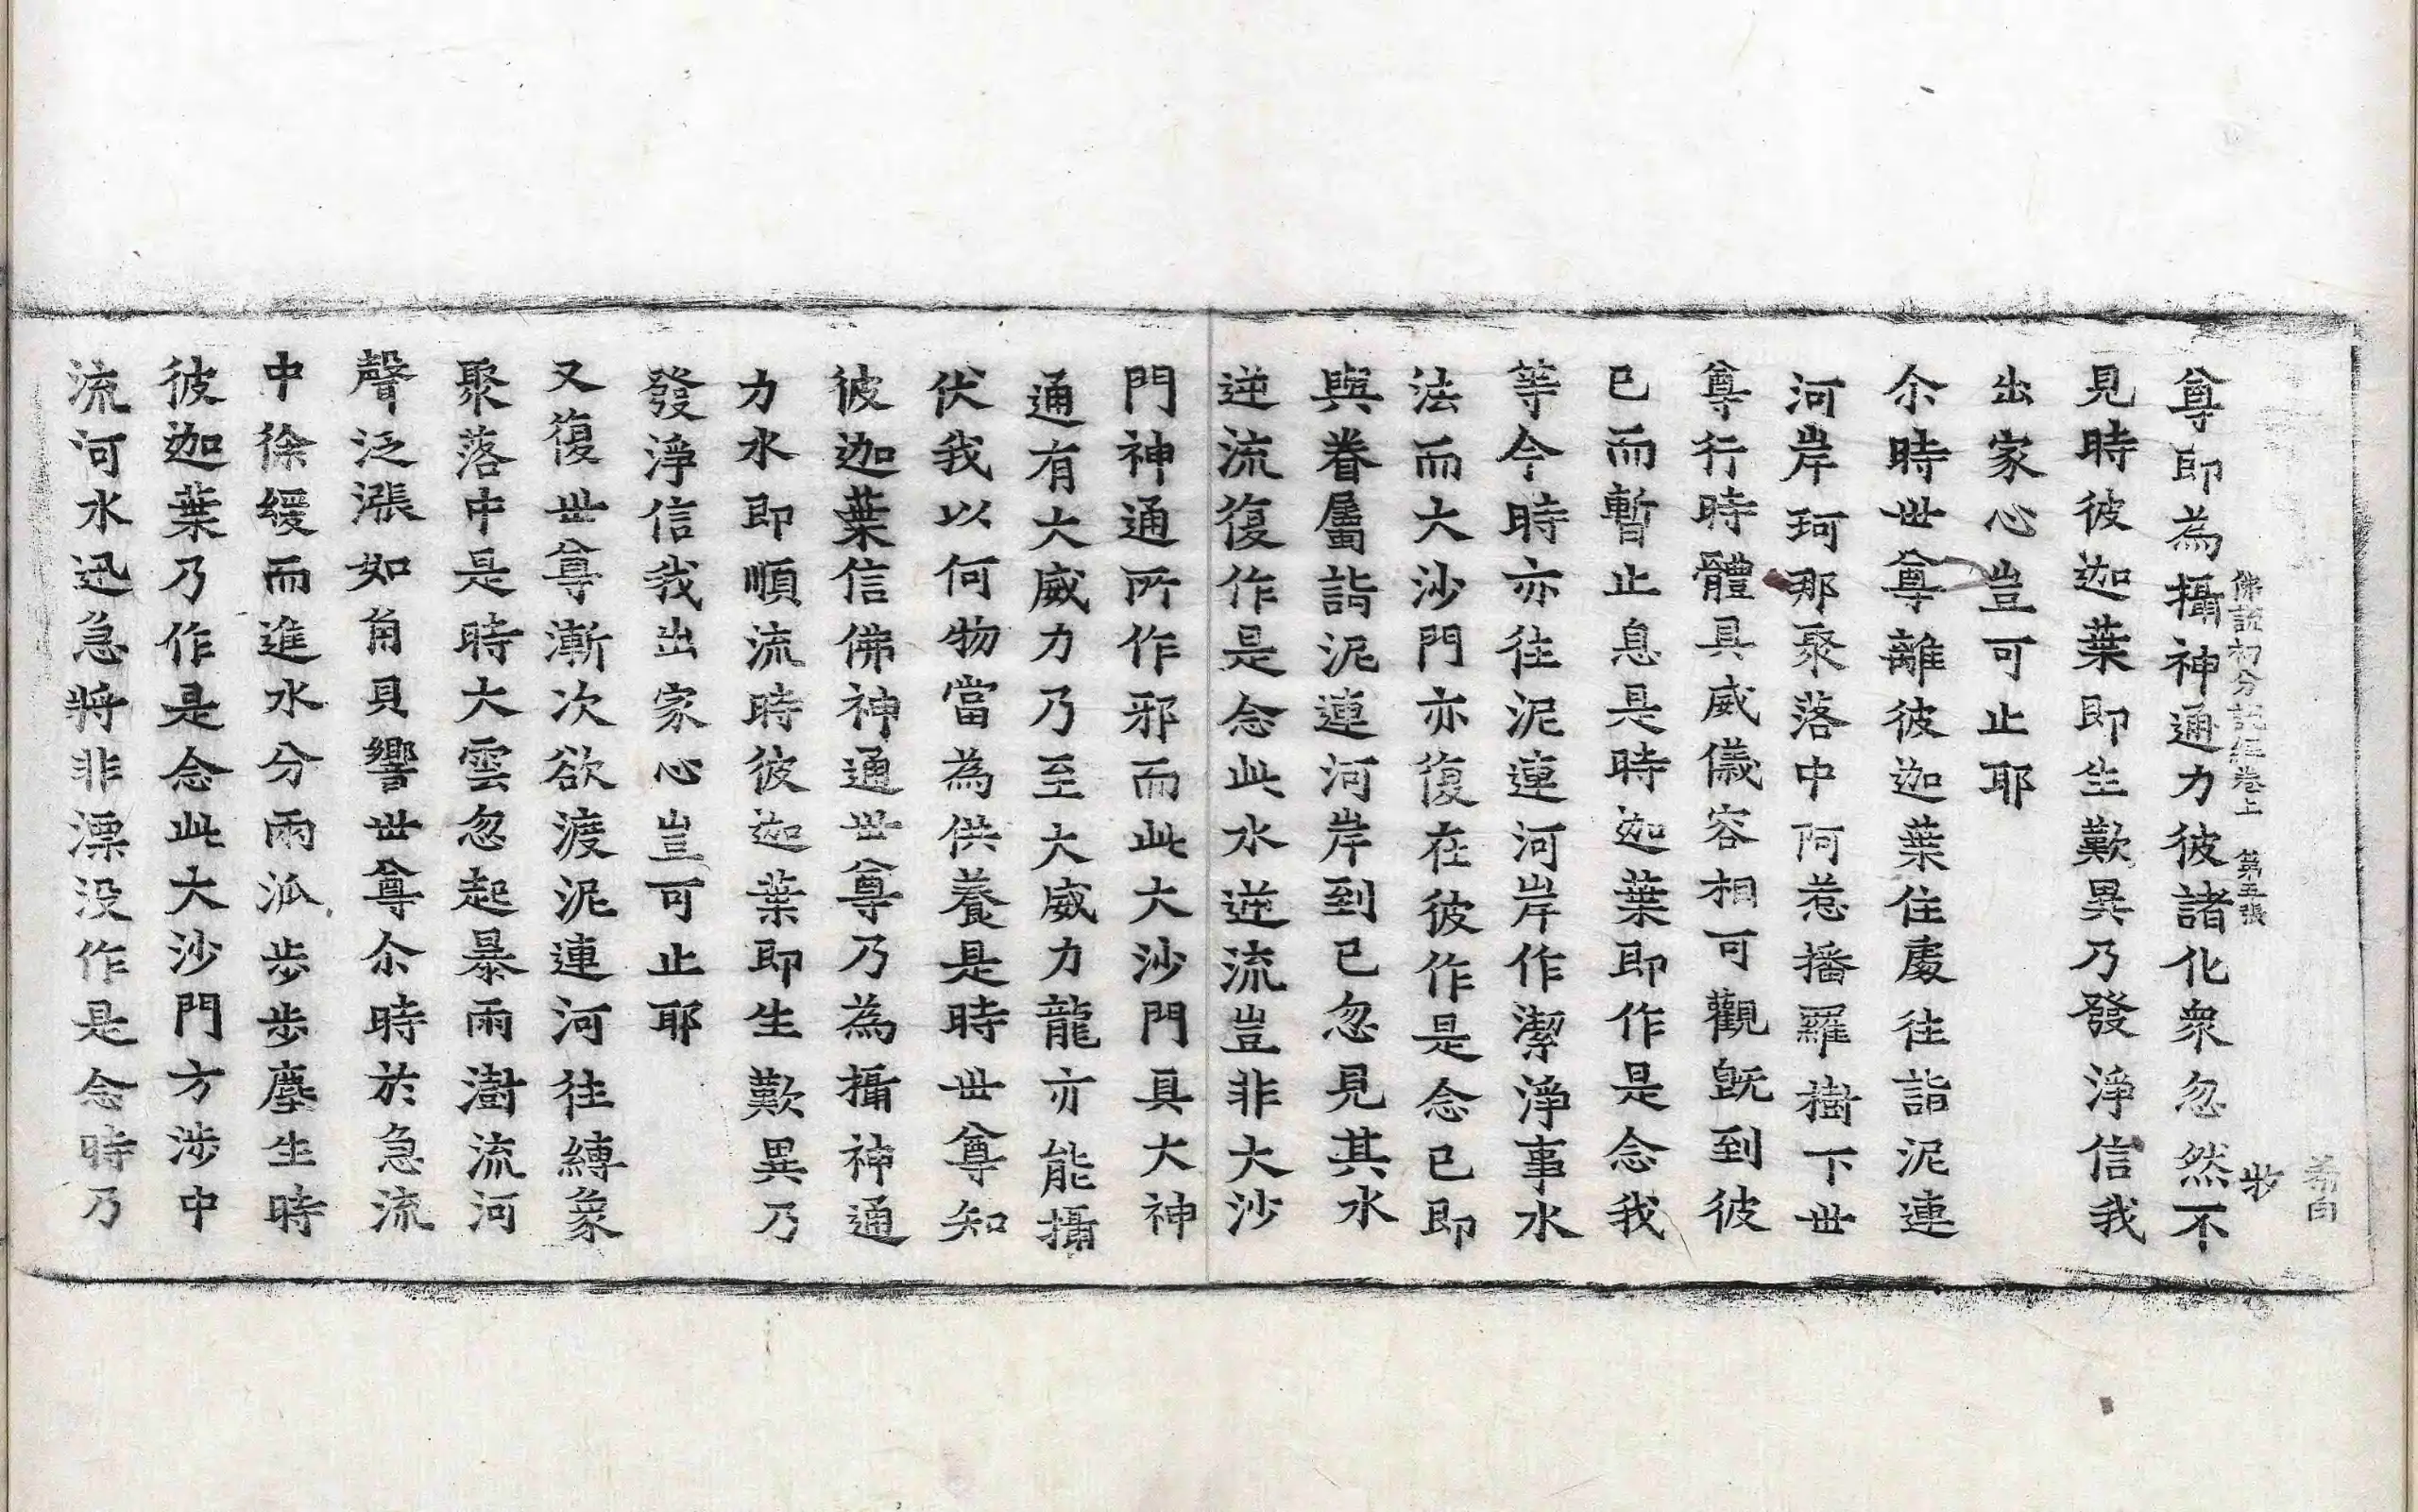 佛說初分說經卷上　第五張　㘽
尊即為攝神通力彼諸化衆忽然不
見時彼迦葉即生歎異乃發淨信我
出家心豈可止耶
尒時世尊離彼迦葉住處往詣泥連
河岸珂那聚落中阿惹播羅樹下世
尊行時體具威儀容相可觀旣到彼
已而暫止息是時迦葉即作是念我
等今時亦往泥連河岸作潔淨事水
法而大沙門亦復在彼作是念已即
與眷屬詣泥連河岸到已忽見其水
逆流復作是念此水逆流豈非大沙
門神通所作邪而此大沙門具大神
通有大威力乃至大威力龍亦能攝
伏我以何物當為供養是時世尊知
彼迦葉信佛神通世尊乃為攝神通
力水即順流時彼迦葉即生歎異乃
發淨信我出家心豈可止耶
又復世尊漸次欲渡泥連河往縛象
聚落中是時大雲忽起暴雨澍流河
聲泛漲如角貝響世尊尒時於急流
中徐緩而進水分兩派步步塵生時
彼迦葉乃作是念此大沙門方涉中
流河水迅急將非漂没作是念時乃